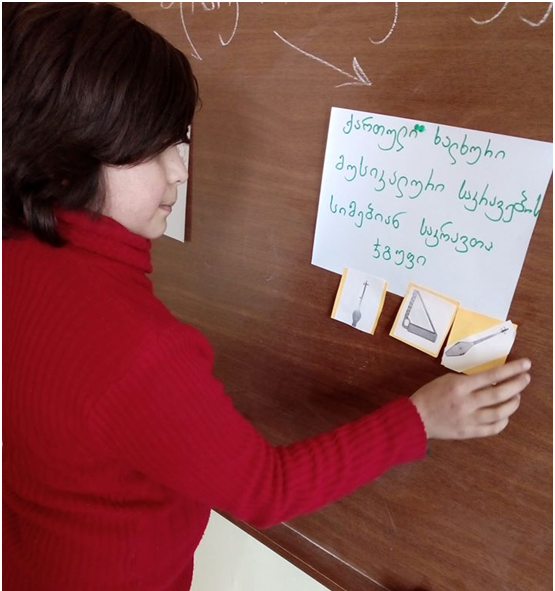 ქართული ხალხური
მუსიკალური საკრავების
სიმებიან საკრავთა
ჯგუფი